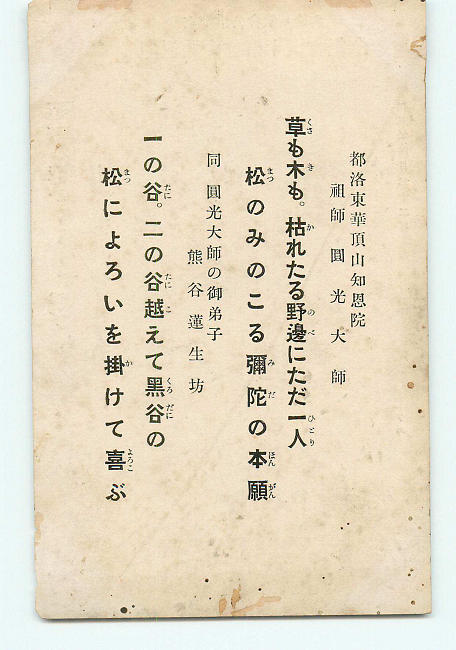 都洛東華頂山知恩院
祖師圓光大師
草も木も。枯れたる野邊にただ一人
松のみのこる彌陀の本願
同 圓光大師の御弟子
熊谷蓮生坊
一の谷。二の谷越えて黑谷の
松によろいを掛けて喜ぶ